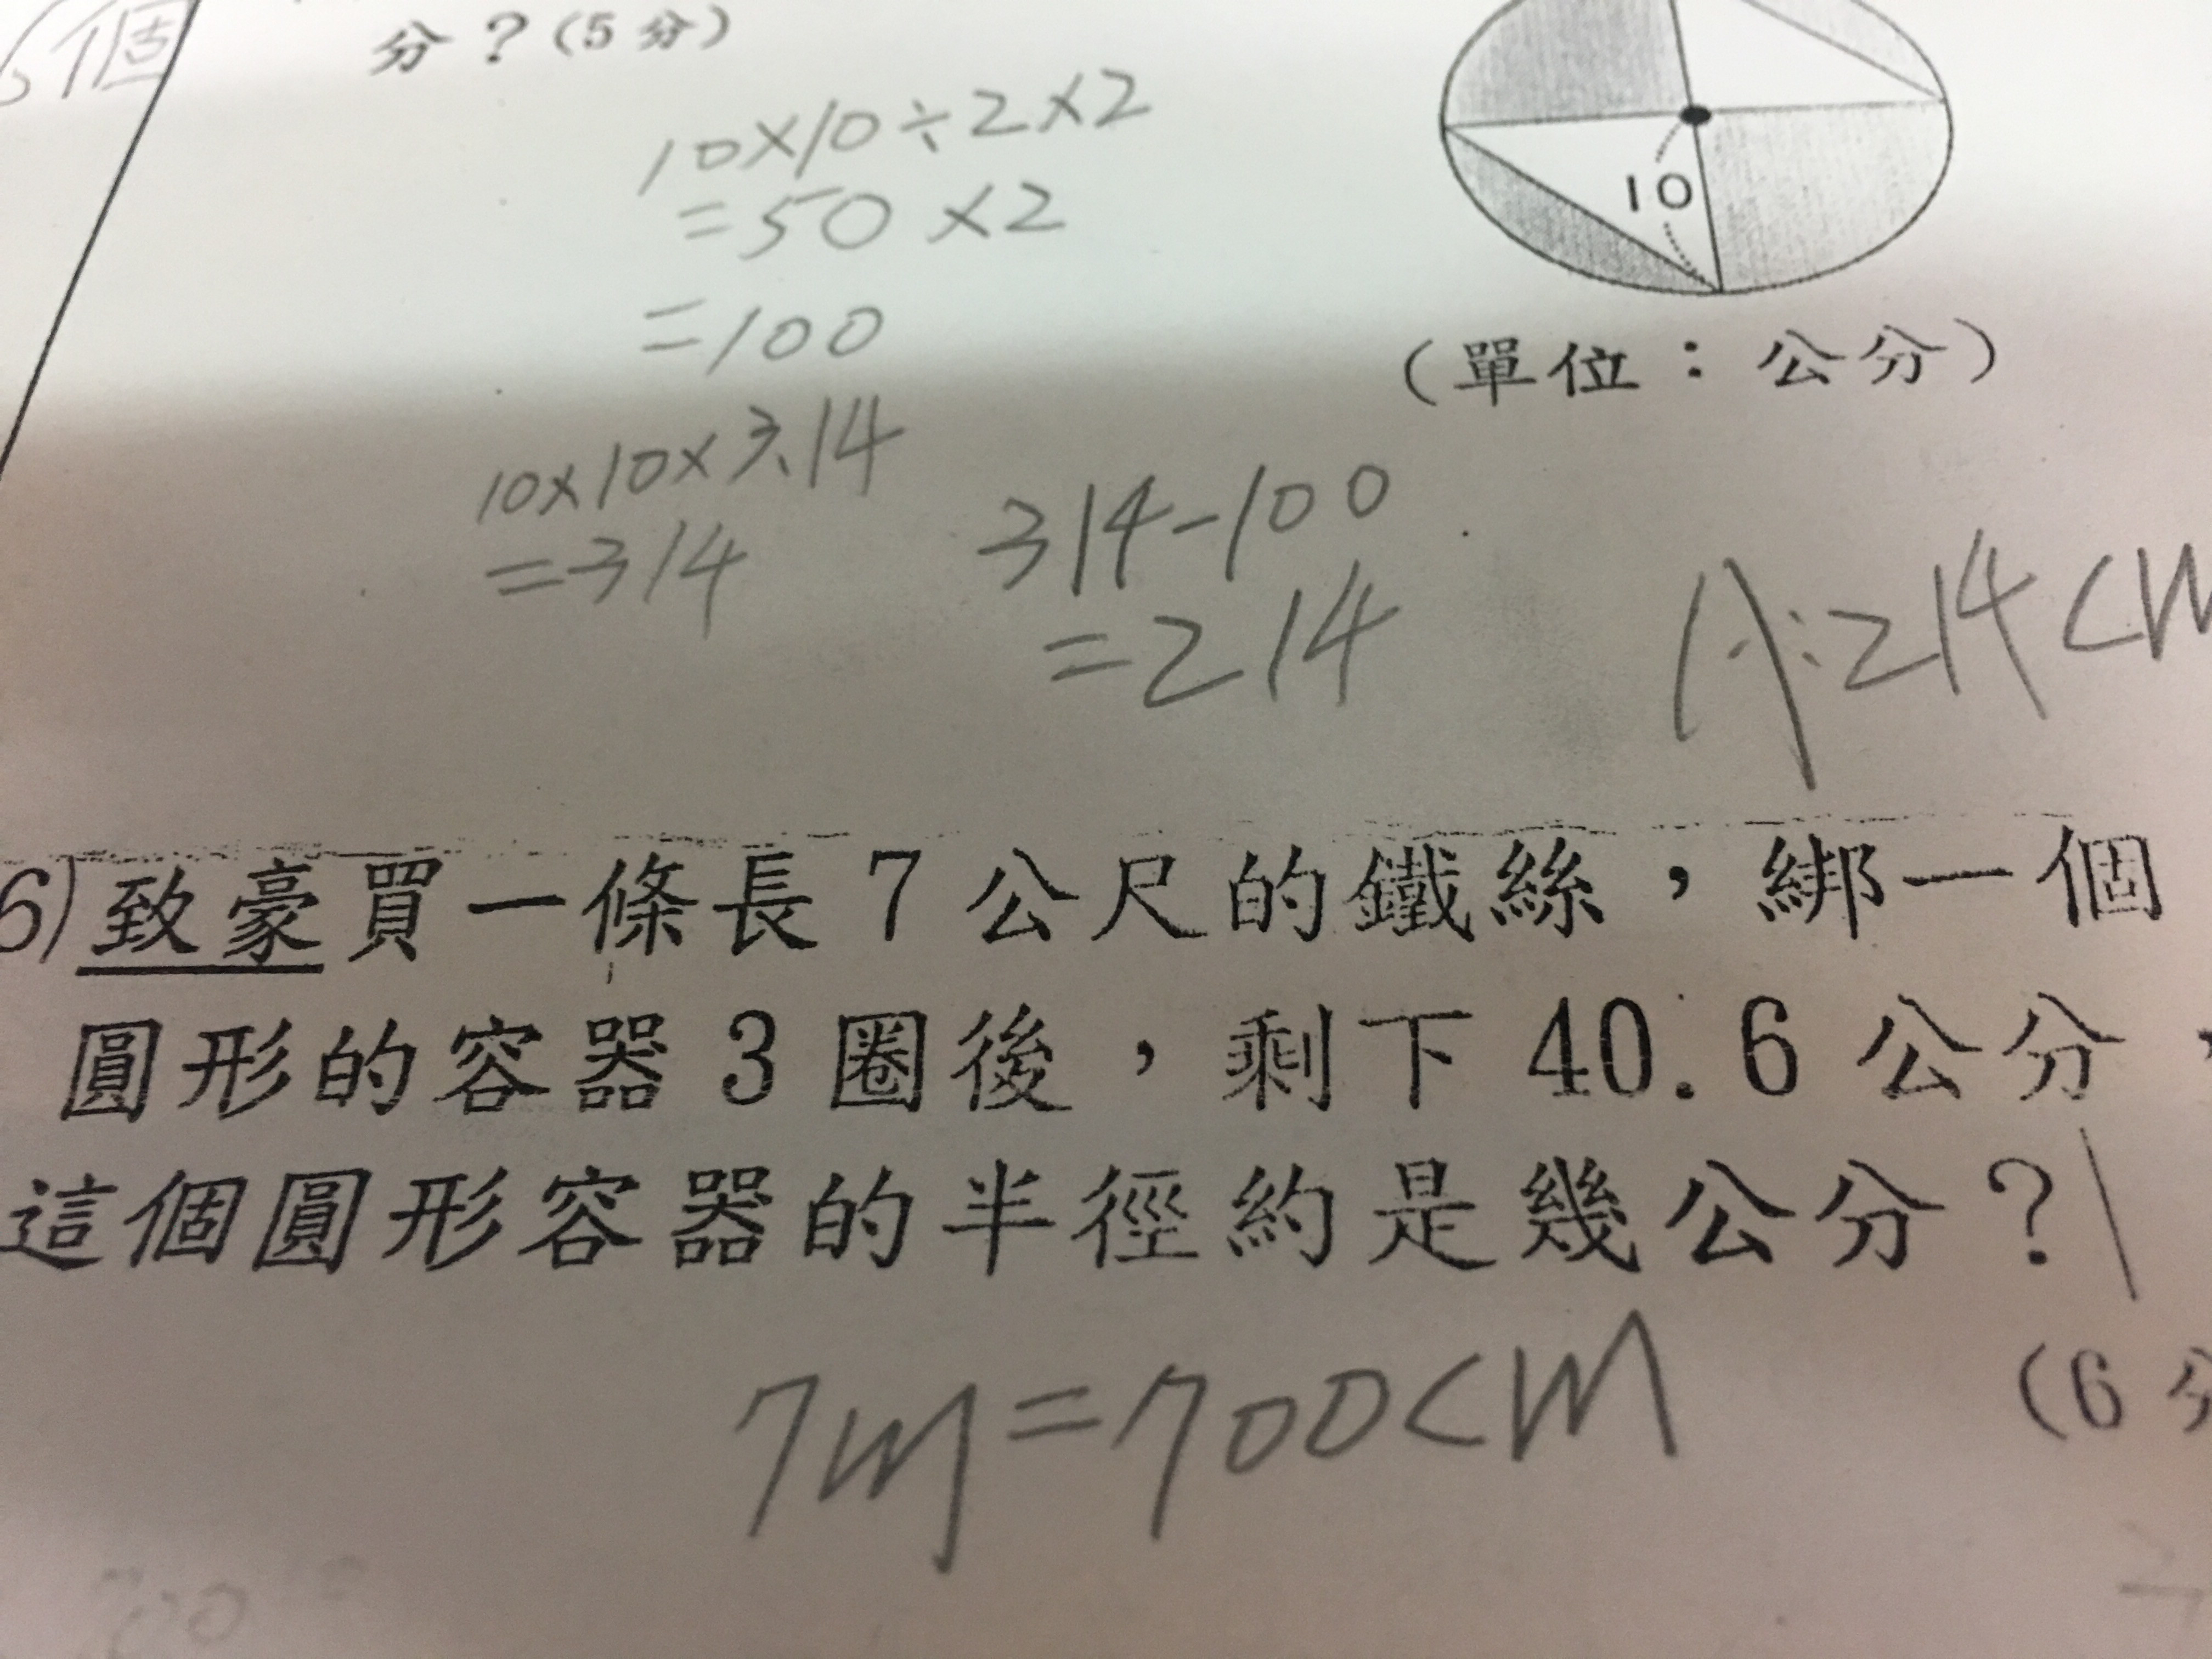 個
分？(5分)
10×10÷2×2
=50×2
=100
10
(單位：公分)
10×10×3.14
=314
314-100
=214
A:214cm
6)致豪買一條長7公尺的鐵絲，綁一個
圓形的容器3圈後，剩下40.6公分，
這個圓形容器的半徑約是幾公分？
(6分
7m=700cm